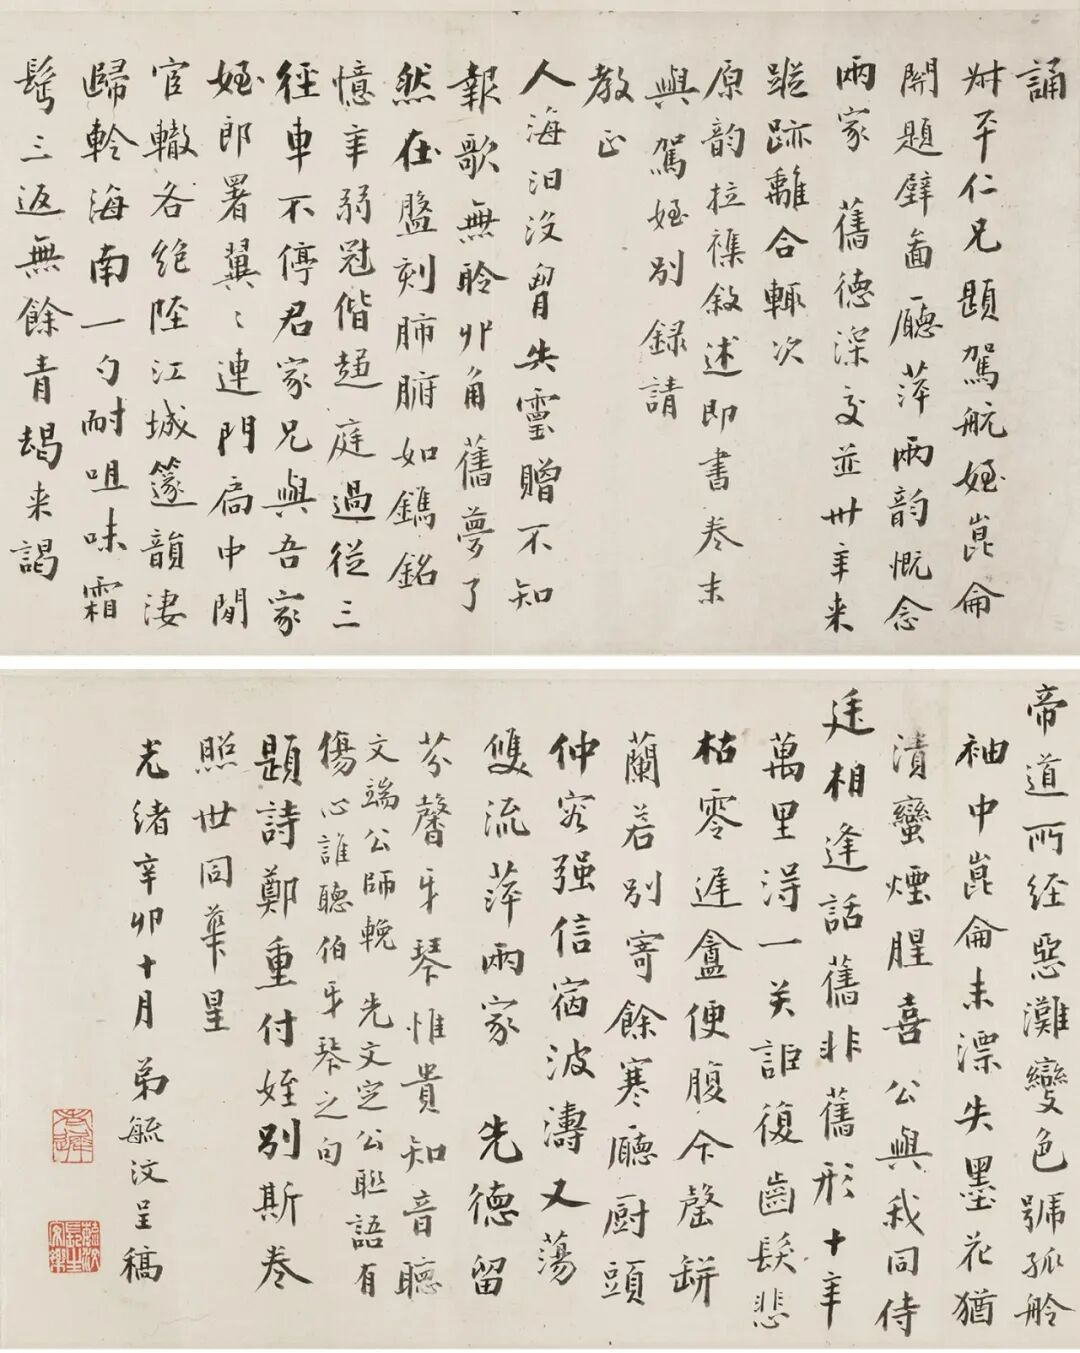 誦
叔平仁兄題駕航姪崑侖
開題壁圖廳萍兩韵慨念
兩家舊德深交並卅年来
蹤跡離合輒次
原韵拉襍敘述即書卷末
與駕姪別錄請
教正
人海汩没胷失靈贈不知
報歌無聆丱角舊夢了
然在盤刻肺腑如鐫銘
憶年弱冠偕趨庭過從三
徑車不停君家兄與吾家
姪郎署翼〻連門扃中閒
官轍各絕陘江城邃韻淒
歸軨海南一勺耐咀味霜
髩三返無餘青朅来謁
帝道所经惡灘變色號孤舲
袖中崑侖未漂失墨花猶
漬蠻煙腥喜公與我同侍
廷相逢話舊非舊形十年
萬里浔一关詎復齒髮悲
枯零遲盦便腹今罄缾
蘭若別寄餘寒廳厨頭
仲容强信宿波濤又蕩
雙流萍兩家先德留
芬馨牙琴惟貴知音聽
文端公師輓先文定公聮語有
傷心誰聽伯牙琴之句
題詩鄭重付姪別斯卷
照世同華星
光绪辛卯十月弟毓汶呈稿